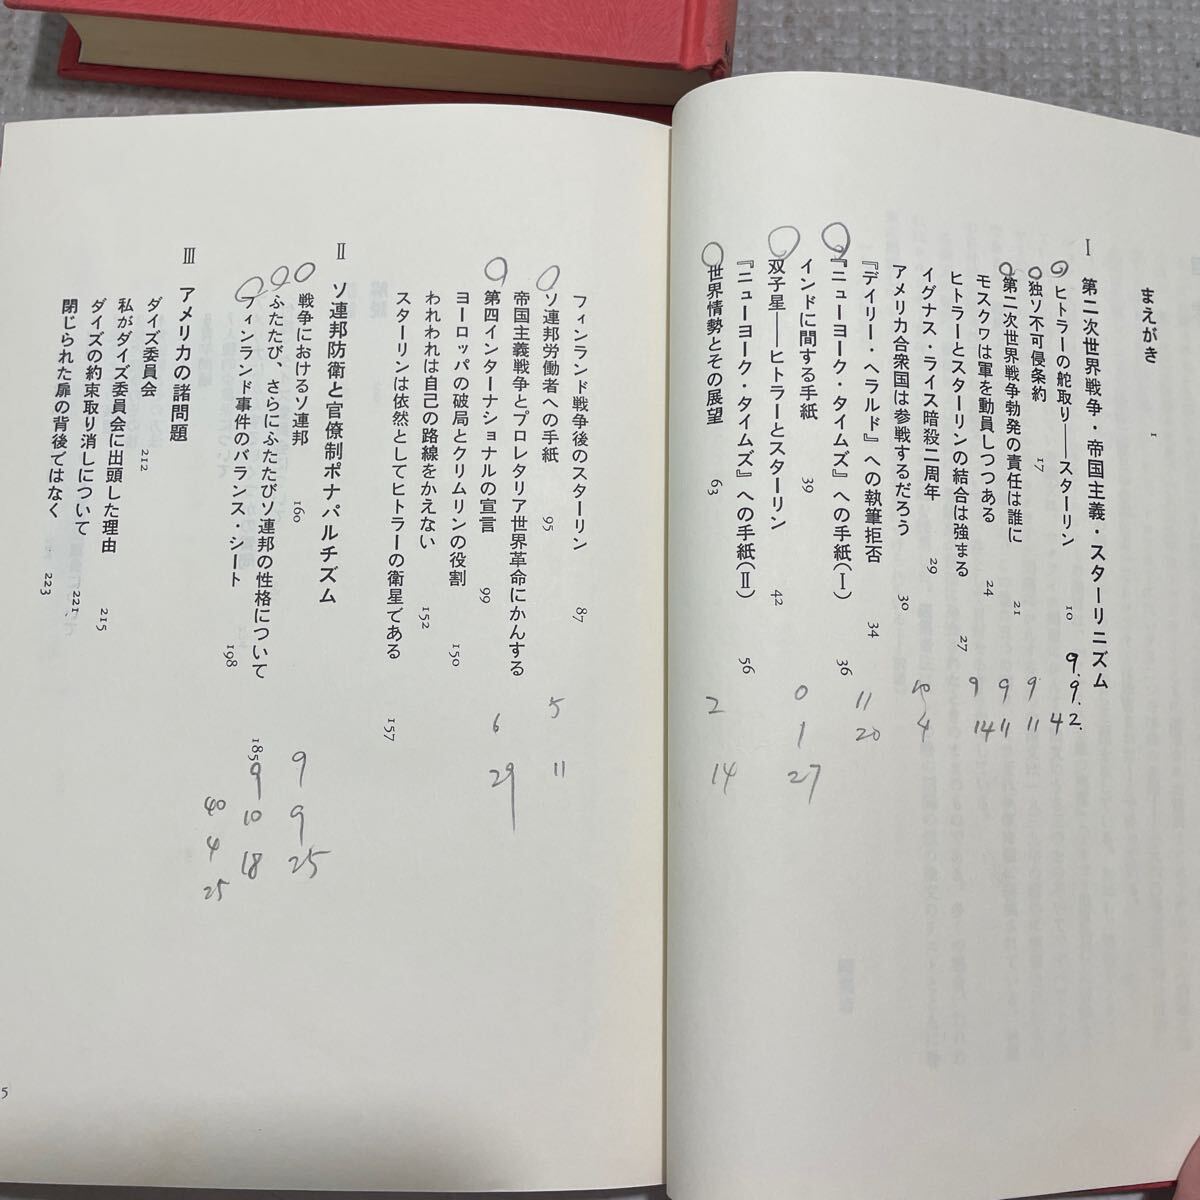 まえがき 1
I 第二次世界戦争・帝国主義・スターリニズム
ヒトラーの舵取り──スターリン 10
9. 9. 2.
独ソ不可侵条約 17
4
第二次世界戦争勃発の責任は誰に 21
9 11
モスクワは軍を動員しつつある 24
9 11
ヒトラーとスターリンの結合は強まる 27
9 14
イグナス・ライス暗殺二周年 29
アメリカ合衆国は参戦するだろう 30
10 4
『デイリー・ヘラルド』への執筆拒否 34
『ニューヨーク・タイムズ』への手紙(I) 36
11 20
インドに間する手紙 39
双子星──ヒトラーとスターリン 42
0 1 27
『ニューヨーク・タイムズ』への手紙(II) 56
世界情勢とその展望 63
2 14
フィンランド戦争後のスターリン 87
ソ連邦労働者への手紙 95
5 11
帝国主義戦争とプロレタリア世界革命にかんする
第四インターナショナルの宣言 99
6 29
ヨーロッパの破局とクリムリンの役割 150
われわれは自己の路線をかえない 152
スターリンは依然としてヒトラーの衛星である 157
II ソ連邦防衛と官僚制ボナパルチズム
戦争におけるソ連邦 160
9 9 25
ふたたび、さらにふたたびソ連邦の性格について 185
9 10 18
フィンランド事件のバランス・シート 198
40 4 25
III アメリカの諸問題
ダイズ委員会 212
私がダイズ委員会に出頭した理由 215
ダイズの約束取り消しについて 221
閉じられた扉の背後ではなく 223
5